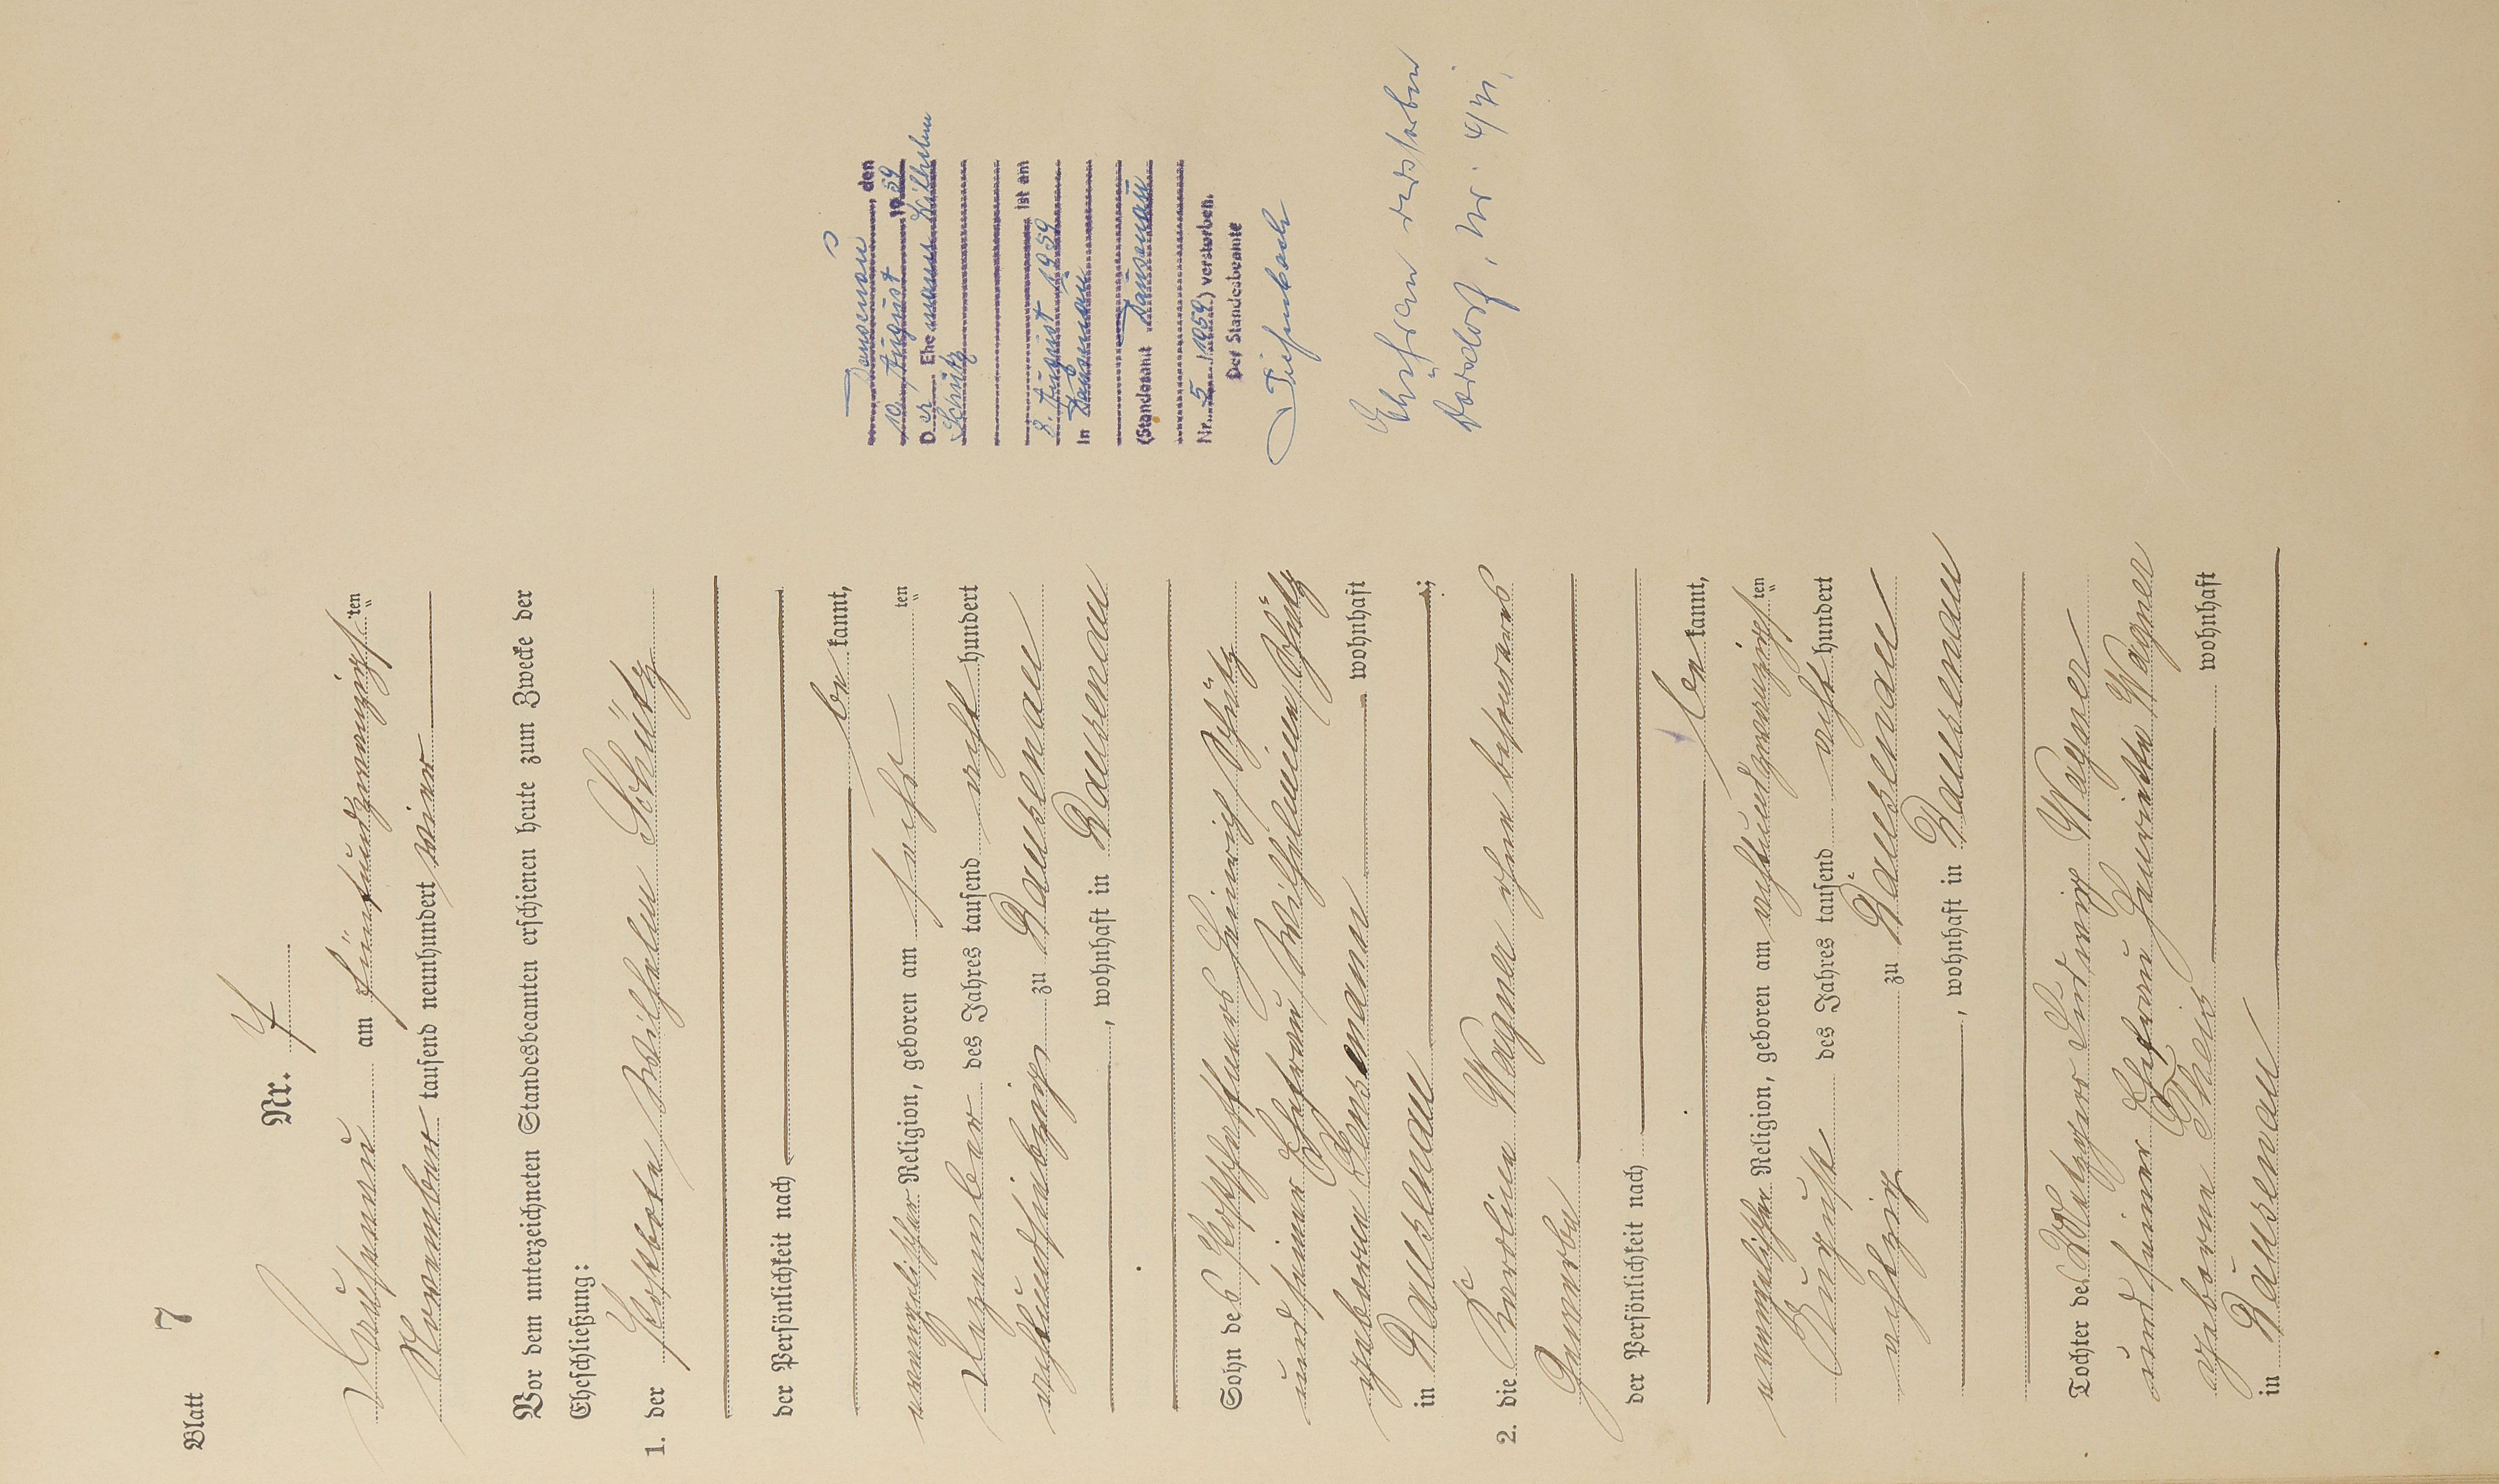 Blatt 7
Nr. 7
Dausenau am fünfundzwanzigsten
November tausend neunhundert vier
Vor dem unterzeichneten Standesbeamten erschienen heute zum Zwecke der
Eheschließung:
1. der Postbote Wilhelm Schütz
der Persönlichkeit nach
be kannt,
evangelischer Religion, geboren am sechs ten
Dezember des Jahres tausend acht hundert
achtundsiebzig zu Dausenau
, wohnhaft in Dausenau
Sohn des Heinrich Schütz
und seiner Ehefrau Wilhelmine Schütz
geborene wohnhaft
in Dausenau ;
2. die Karoline Wagner ohne besonderes
Gewerbe
der Persönlichkeit nach
be kannt,
evangelischer Religion, geboren am achtundzwanzigsten
August des Jahres tausend acht hundert
achtzig zu Dausenau
, wohnhaft in Dausenau
Tochter des Metzgers Ludwig Wagner
und seiner Ehefrau Henriette Wagner
geborene Theis wohnhaft
in Dausenau
Dausenau, den
10. August 1959
Der Ehemann Wilhelm
Schütz
ist am
8. August 1959
in Dausenau
(Standesamt Dausenau
Nr. 5/1959) verstorben.
Der Standesbeamte
Ehefrau verstorben